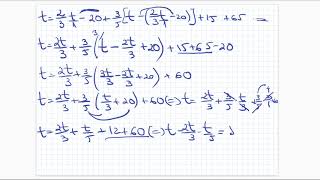 t = 2/3 t - 20 + 3/5 [t - (2t/3 - 20)] + 15 + 65 =
t = 2t/3 + 3/5 (t - 2t/3 + 20) + 15 + 65 - 20
t = 2t/3 + 3/5 (3t/3 - 2t/3 + 20) + 60
t = 2t/3 + 3/5 (t/3 + 20) + 60 (=) t = 2t/3 + 3/5 · t/3 +
t = 2t/3 + t/5 + 12 + 60 (=) t - 2t/3 - t/5 =